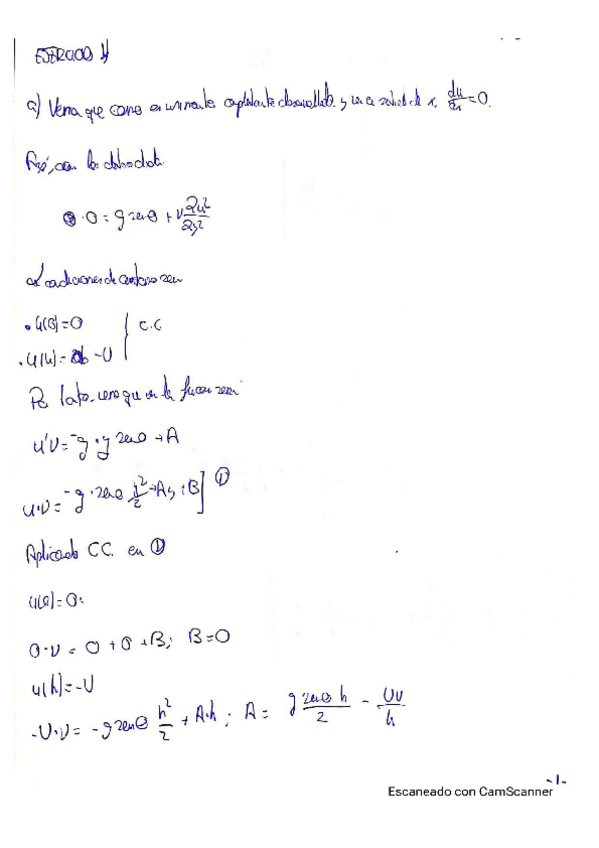 EJERCICIO 4
a) Vemos que como es un corriente completamente desarrollada, y en la salida de x, du/dx = 0.
Así, con los datos
0 = g senθ + ν ∂u²/∂y²
condiciones de contorno son
· u(0) = 0 } C.C
· u(h) = -U
Por lo tanto, vemos que la
u'ν = -g·y senθ + A
u·ν = -g·senθ y²/2 + Ay + B] ①
Aplicando CC. en ①
u(0) = 0:
0·ν = 0 + 0 + B; B = 0
u(h) = -U
-U·ν = -g senθ h²/2 + A·h; A = g senθ h/2 - Uν/h
-1-
Escaneado con CamScanner